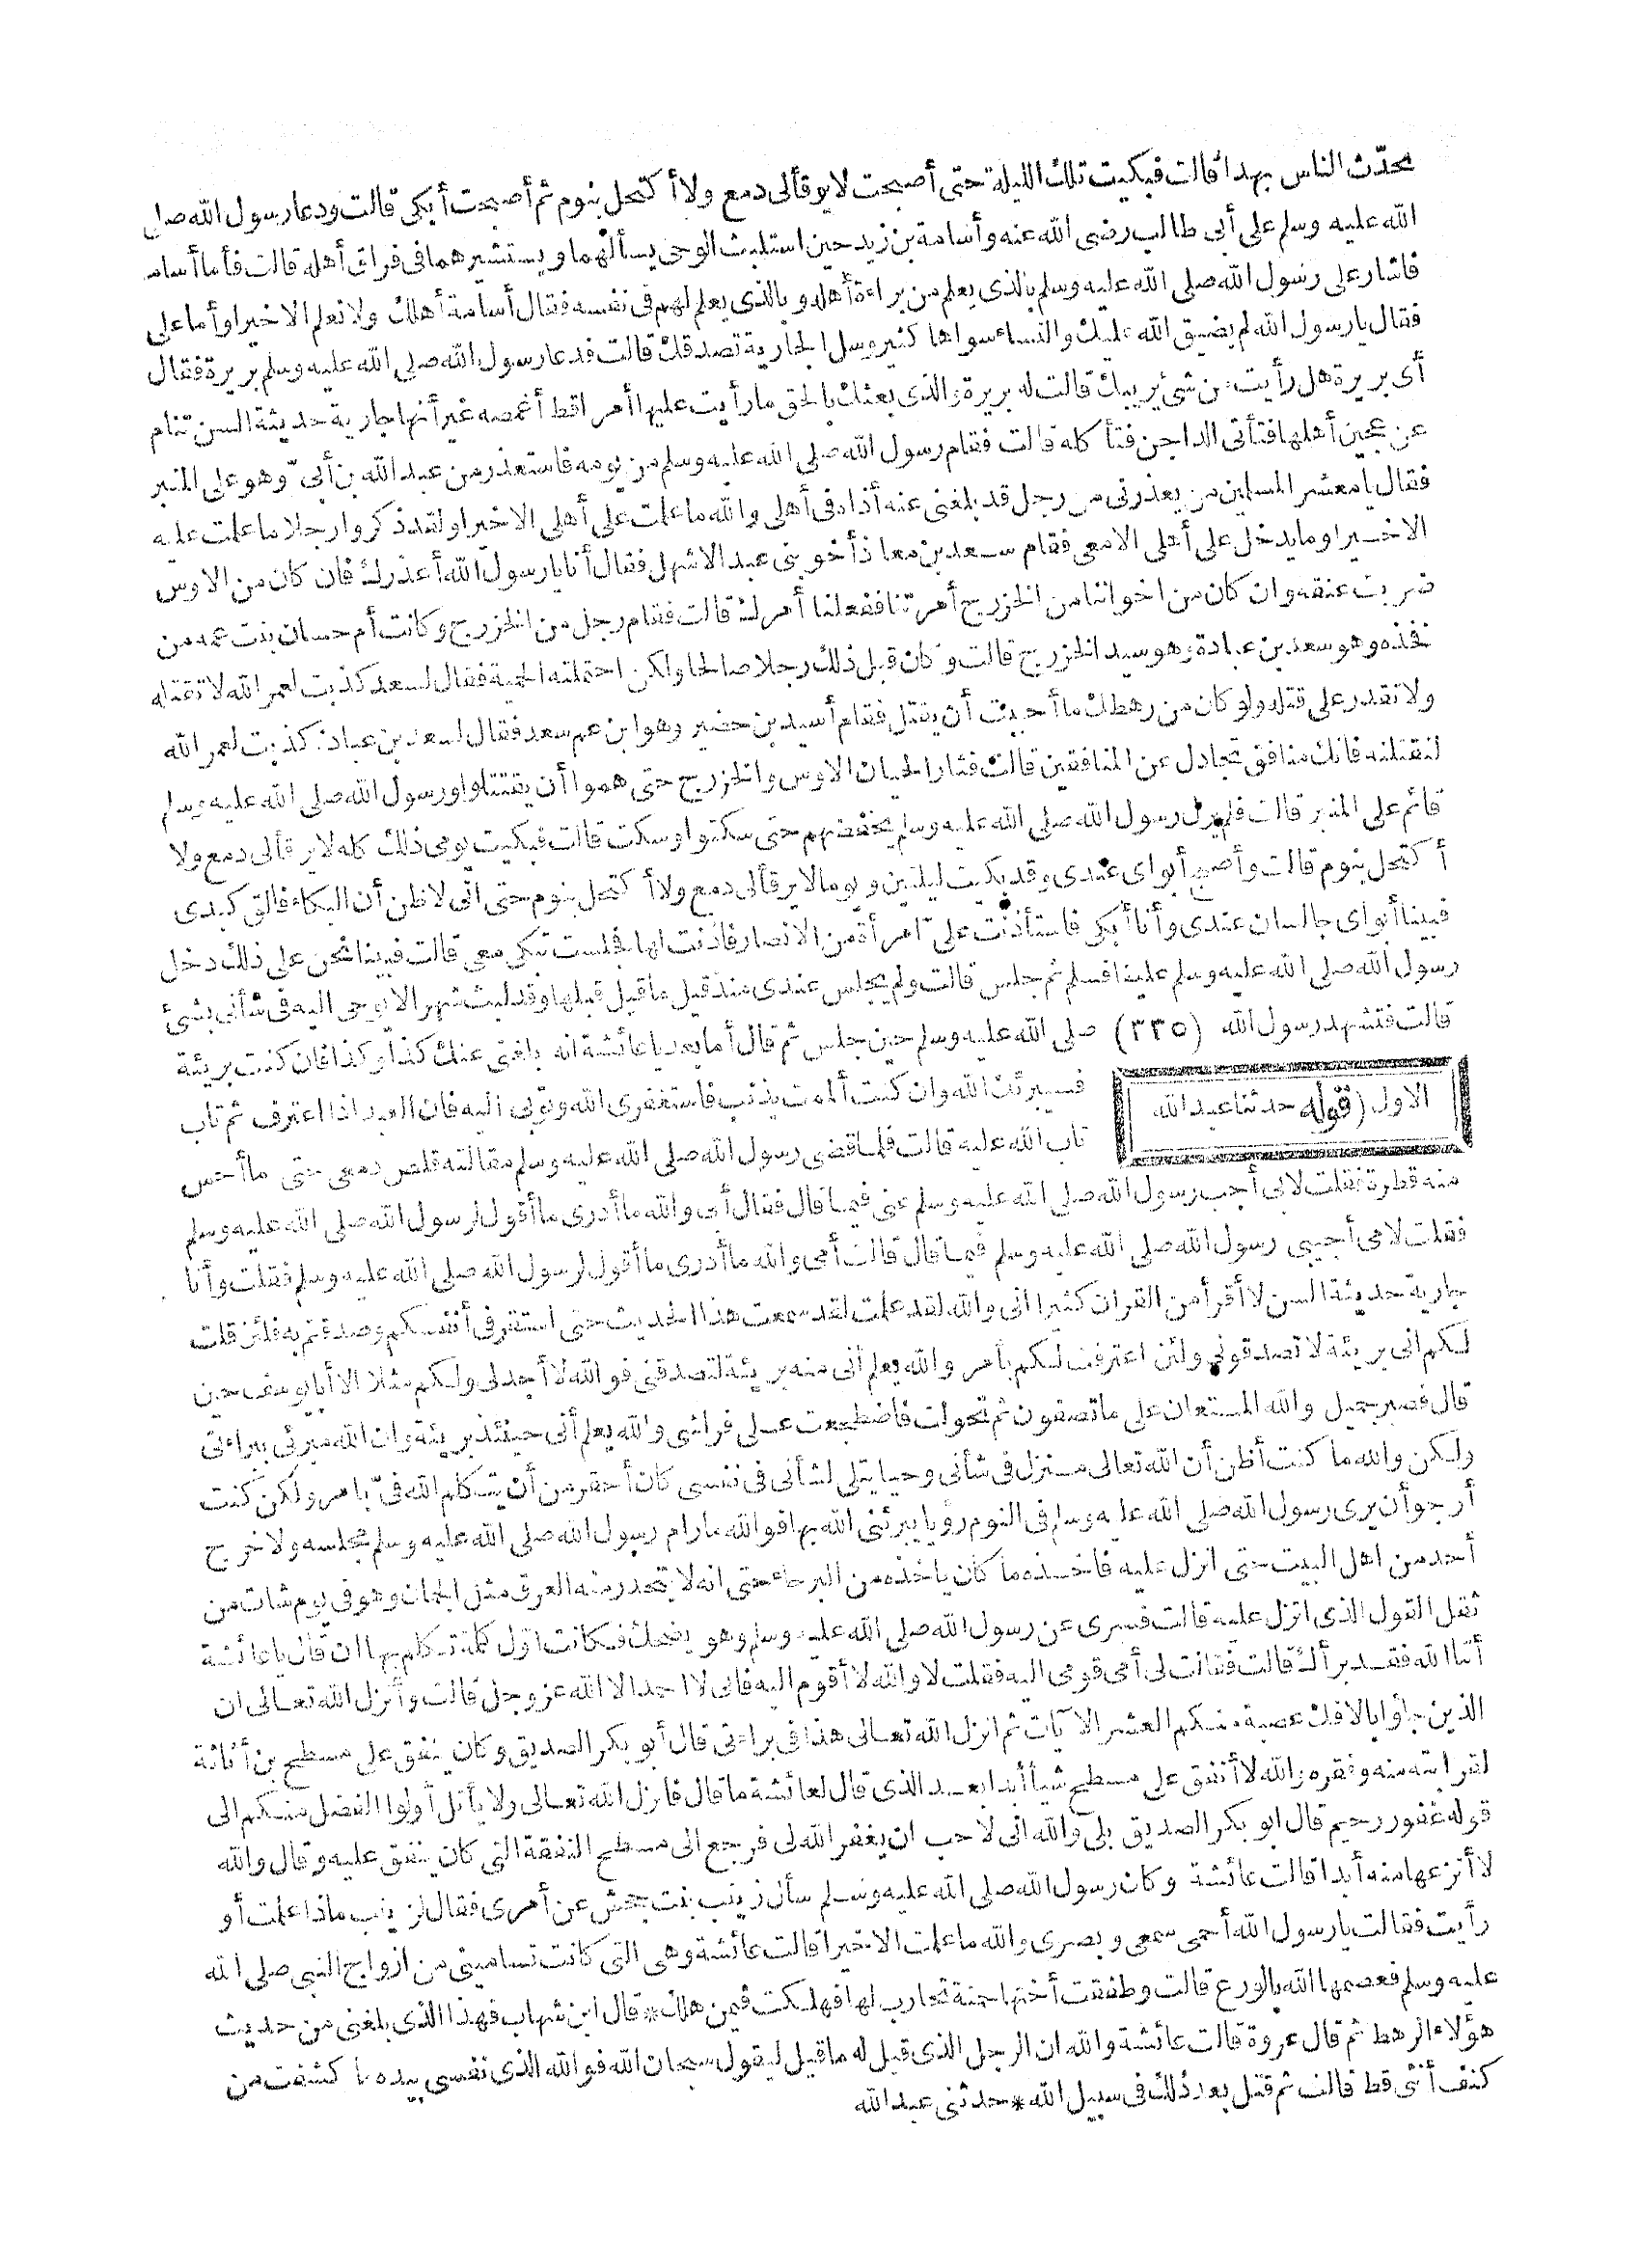 يحدّث الناس بهذا قالت فبكيت تلك الليلة حتى أصبحت لا يرقألى دمع ولا أكتحل بنوم ثم أصبحت أبكى قالت ودعا رسول الله صلى
الله عليه وسلم على أبى طالب رضى الله عنه وأسامة بن زيد حين استلبث الوحى يسألهما ويستشيرهما فى فراق أهله قالت فأما أسامة
فاشار على رسول الله صلى الله عليه وسلم بالذى يعلم من براءة أهله وبالذى يعلم لهم فى نفسه فقال أسامة أهلك ولا نعلم الا خيرا وأما على
فقال يا رسول الله لم يضيق الله عليك والنساء سواها كثير وسل الجارية تصدقك قالت فدعا رسول الله صلى الله عليه وسلم بريرة فقال
أى بريرة هل رأيت من شئ يريبك قالت له بريرة والذى بعثك بالحق ما رأيت عليها أمرا قط أغمصه غير أنها جارية حديثة السن تنام
عن عجين أهلها فتأتى الداجن فتأكله قالت فقام رسول الله صلى الله عليه وسلم من يومه فاستعذر من عبد الله بن أبىّ وهو على المنبر
فقال يا معشر المسلمين من يعذرنى من رجل قد بلغنى عنه أذاه فى أهلى والله ما علمت على أهلى الا خيرا ولقد ذكروا رجلا ما علمت عليه
الا خيرا وما يدخل على أهلى الا معى فقام سعد بن معاذ أخو بنى عبد الاشهل فقال أنا يا رسول الله أعذرك فان كان من الاوس
ضربت عنقه وان كان من اخواننا من الخزرج أمرتنا ففعلنا أمرك قالت فقام رجل من الخزرج وكانت أم حسان بنت عمه من
فخذه وهو سعد بن عبادة وهو سيد الخزرج قالت وكان قبل ذلك رجلا صالحا ولكن احتملته الحمية فقال لسعد كذبت لعمر الله لا تقتله
ولا تقدر على قتله ولو كان من رهطك ما أحببت أن يقتل فقام أسيد بن حضير وهو ابن عم سعد فقال لسعد بن عبادة كذبت لعمر الله
لنقتلنه فانك منافق تجادل عن المنافقين قالت فثار الحيان الاوس والخزرج حتى هموا أن يقتتلوا ورسول الله صلى الله عليه وسلم
قائم على المنبر قالت فلم يزل رسول الله صلى الله عليه وسلم يخفضهم حتى سكتوا وسكت قالت فبكيت يومى ذلك كله لا يرقألى دمع ولا
أكتحل بنوم قالت وأصبح أبواى عندى وقد بكيت ليلتين ويوما لا يرقألى دمع ولا أكتحل بنوم حتى انى لاظن أن البكاء فالق كبدى
فبينا أبواى جالسان عندى وأنا أبكى فاستأذنت علىّ امرأة من الانصار فاذنت لها فجلست تبكى معى قالت فبينا نحن على ذلك دخل
رسول الله صلى الله عليه وسلم علينا فسلم ثم جلس قالت ولم يجلس عندى منذ قيل ما قيل قبلها وقد لبث شهرا لا يوحى اليه فى شأنى بشئ
قالت فتشهد رسول الله (٣٣٥) صلى الله عليه وسلم حين جلس ثم قال أما بعد يا عائشة انه بلغنى عنك كذا وكذا فان كنت بريئة
الاول (قوله حدثنا عبد الله
فسيبرئك الله وان كنت ألممت بذنب فاستغفرى الله وتوبى اليه فان العبد اذا اعترف ثم تاب
تاب الله عليه قالت فلما قضى رسول الله صلى الله عليه وسلم مقالته قلص دمعى حتى ما أحس
منه قطرة فقلت لابى أجب رسول الله صلى الله عليه وسلم عنى فيما قال فقال أبى والله ما أدرى ما أقول لرسول الله صلى الله عليه وسلم
فقلت لامى أجيبى رسول الله صلى الله عليه وسلم فيما قال قالت أمى والله ما أدرى ما أقول لرسول الله صلى الله عليه وسلم فقلت وأنا
جارية حديثة السن لا أقرأ من القران كثيرا انى والله لقد علمت لقد سمعت هذا الحديث حتى استقر فى أنفسكم وصدقتم به فلئن قلت
لكم انى بريئة لا تصدقونى ولئن اعترفت لكم بأمر والله يعلم أنى منه بريئة لتصدقنى فوالله لا أجد لى ولكم مثلا الا أبا يوسف حين
قال فصبر جميل والله المستعان على ما تصفون ثم تحولت فاضطجعت على فراشى والله يعلم أنى حينئذ بريئة وان الله مبرئى ببراءتى
ولكن والله ما كنت أظن أن الله تعالى منزل فى شأنى وحيا يتلى لشأنى فى نفسى كان أحقر من أن يتكلم الله فىّ بامر ولكن كنت
أرجو أن يرى رسول الله صلى الله عليه وسلم فى النوم رؤيا يبرئنى الله بها فوالله ما رام رسول الله صلى الله عليه وسلم مجلسه ولا خرج
أحد من اهل البيت حتى انزل عليه فاخذه ما كان ياخذه من البرحاء حتى انه لا يتحدر منه العرق مثل الجمان وهو فى يوم شات من
ثقل القول الذى انزل عليه قالت فسرى عن رسول الله صلى الله عليه وسلم وهو يضحك فكانت اوّل كلمة تكلم بها ان قال يا عائشة
أمّا الله فقد برأك قالت فقالت لى أمى قومى اليه فقلت لا والله لا أقوم اليه فانى لا احمد الا الله عز وجل قالت وأنزل الله تعالى ان
الذين جاؤا بالافك عصبة منكم العشر الا آيات ثم انزل الله تعالى هذا فى براءتى قال أبو بكر الصديق وكان ينفق على مسطح بن أثاثة
لقرابته منه وفقره والله لا أنفق على مسطح شيأ أبدا بعد الذى قال لعائشة ما قال فانزل الله تعالى ولا يأتل أولوا الفضل منكم الى
قوله غفور رحيم قال ابو بكر الصديق بلى والله انى لاحب ان يغفر الله لى فرجع الى مسطح النفقة التى كان ينفق عليه وقال والله
لا أنزعها منه أبدا قالت عائشة وكان رسول الله صلى الله عليه وسلم سأل زينب بنت جحش عن أمرى فقال لزينب ماذا علمت أو
رأيت فقالت يا رسول الله أحمى سمعى وبصرى والله ما علمت الا خيرا قالت عائشة وهى التى كانت تسامينى من ازواج النبى صلى الله
عليه وسلم فعصمها الله بالورع قالت وطفقت أختها حمنة تحارب لها فهلكت فيمن هلك * قال ابن شهاب فهذا الذى بلغنى من حديث
هؤلاء الرهط ثم قال عروة قالت عائشة والله ان الرجل الذى قيل له ما قيل ليقول سبحان الله فوالله الذى نفسى بيده ما كشفت من
كنف أنثى قط قالت ثم قتل بعد ذلك فى سبيل الله * حدثنى عبد الله